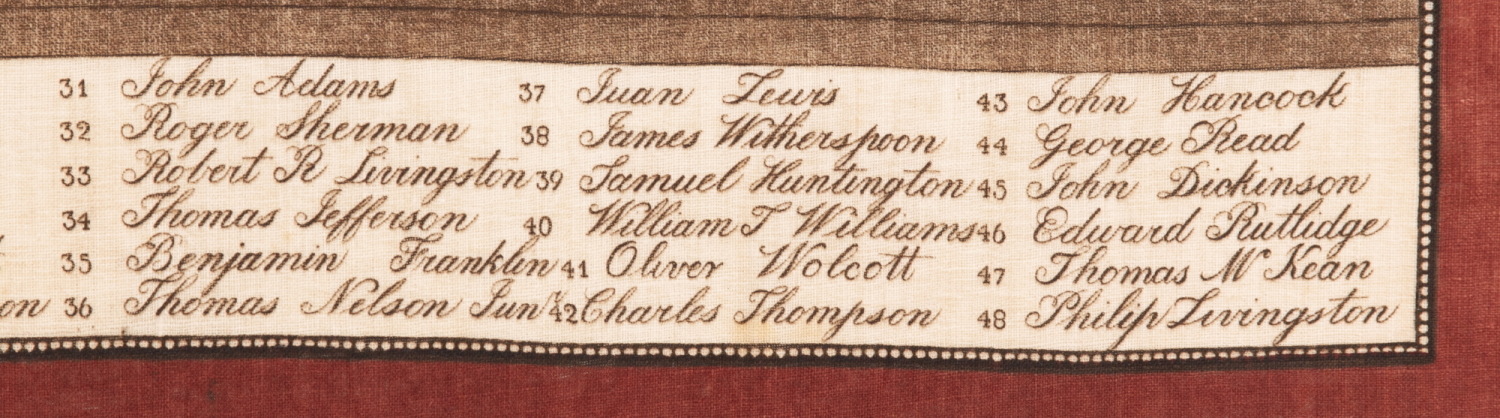 31 John Adams
32 Roger Sherman
33 Robert R Livingston
34 Thomas Jefferson
35 Benjamin Franklin
on 36 Thomas Nelson Junr
37 Juan Lewis
38 James Witherspoon
39 Samuel Huntington
40 William T Williams
41 Oliver Wolcott
42 Charles Thompson
43 John Hancock
44 George Read
45 John Dickinson
46 Edward Rutlidge
47 Thomas Mc Kean
48 Philip Livingston